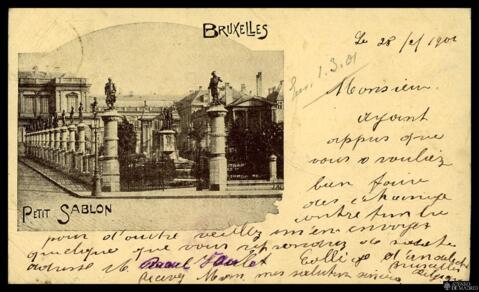 BRUXELLES
PETIT SABLON
Le 28/2/1901
1.3.01
Monsieur.
ayant
appris que
vous vouliez
bien faire
des échange
contre timbre
pour d'outre veillez m'en envoyer
quelque que vous reprendrez de suite
adresse M Raoul Collège
Bruxelles
Recevez Mons. mes salution